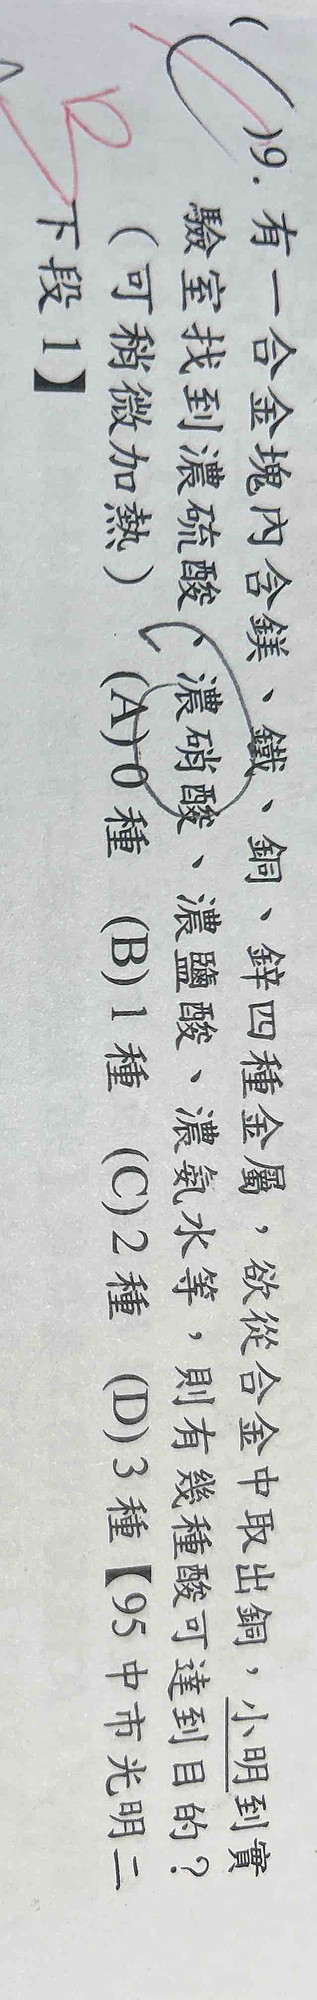 ( )9. 有一合金塊內含鎂、鐵、銅、鋅四種金屬，欲從合金中取出銅，小明到實
驗室找到濃硫酸、濃硝酸、濃鹽酸、濃氨水等，則有幾種酸可達到目的？
（可稍微加熱） (A) 0 種 (B) 1 種 (C) 2 種 (D) 3 種【95 中市光明二
下段 1】